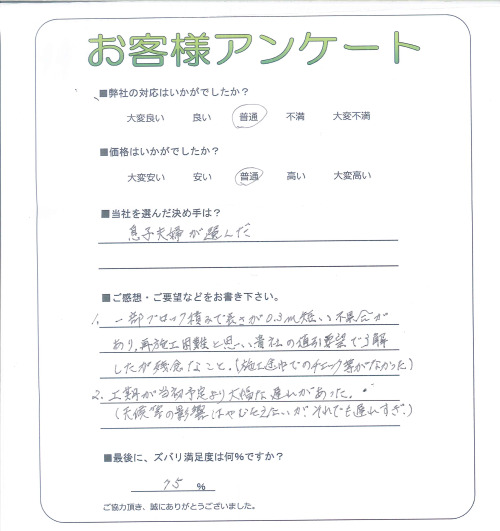 お客様アンケート
■弊社の対応はいかがでしたか？
大変良い 良い 普通 不満 大変不満
■価格はいかがでしたか？
大変安い 安い 普通 高い 大変高い
■当社を選んだ決め手は？
息子夫婦が選んだ
■ご感想・ご要望などをお書き下さい。
1. 一部ブロック積みで長さが0.3m短い不具合が
あり,再施工困難と思い貴社の値引要望で了解
したが残念なこと。(施工途中でのチェック等がなかった)
2. 工期が当初予定より大幅な遅れがあった。
(天候等の影響はやむをえないが、それでも遅れすぎ。)
■最後に、ズバリ満足度は何%ですか？
75 %
ご協力頂き、誠にありがとうございました。